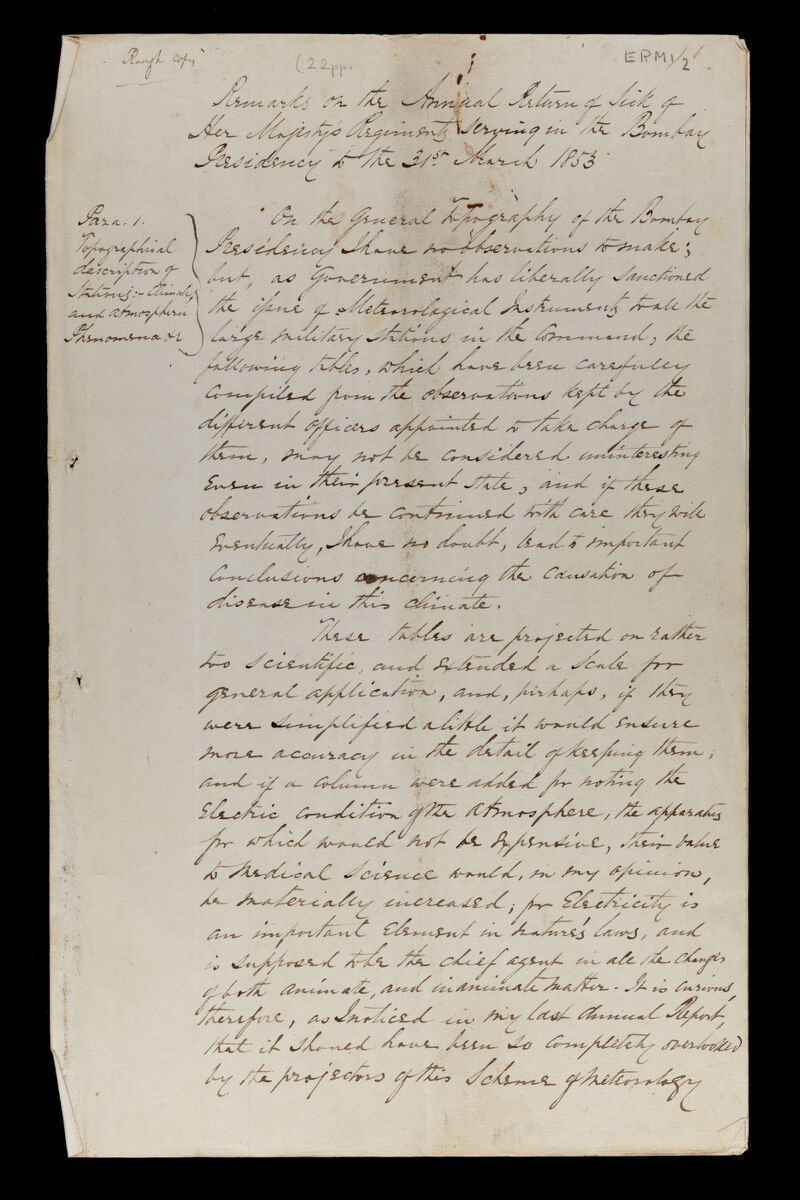 Rough copy
(22pp.
ERM1/2
Remarks on the Annual Return of Sick of
Her Majesty's Regiments serving in the Bombay
Presidency to the 31st March 1853
Para: 1.
Topographical
description of
Stations:- Climate,
and atmospheric
Phenomena &c
On the General Topography of the Bombay
Presidency I have no observations to make;
but, as Government has liberally sanctioned
the issue of Meteorological Instruments to all the
large military stations in the Command, the
following tables, which have been carefully
compiled from the observations kept by the
different officers appointed to take charge of
them, may not be considered uninteresting
even in their present state, and if these
observations be continued with care they will
eventually, I have no doubt, lead to important
conclusions concerning the causation of
disease in this climate.
These tables are projected on rather
too scientific, and extended a scale for
general application, and, perhaps, if they
were simplified a little it would ensure
more accuracy in the detail of keeping them;
and if a column were added for noting the
Electric condition of the atmosphere, the apparatus
for which would not be expensive, their value
to Medical Science would, in my opinion,
be materially increased; for Electricity is
an important element in nature's laws, and
is supposed to be the chief agent in all the changes
of both animate, and inanimate matter. It is curious,
therefore, as I noticed in my last Annual Report,
that it should have been so completely overlooked
by the projectors of this Scheme of Meteorology